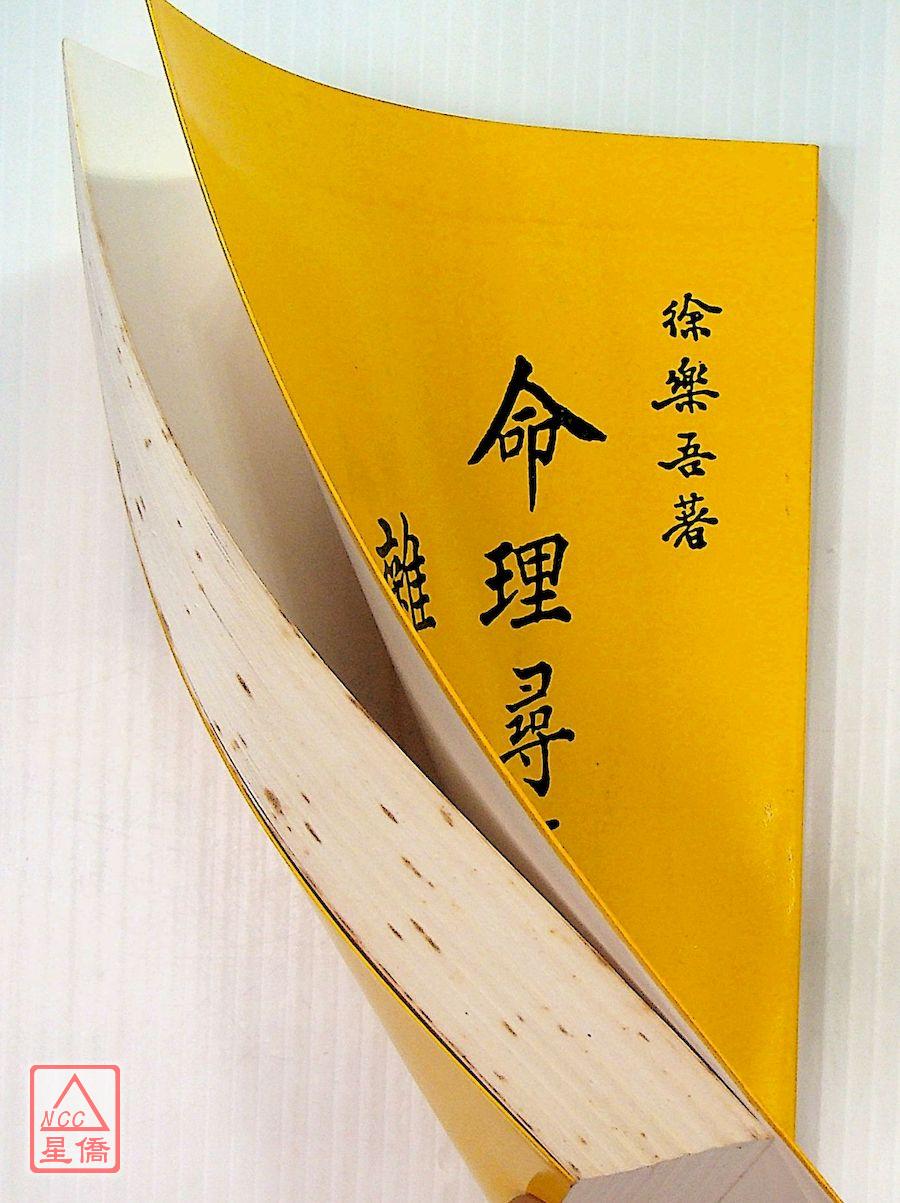 徐樂吾著
命理尋
雜
NCC
星僑